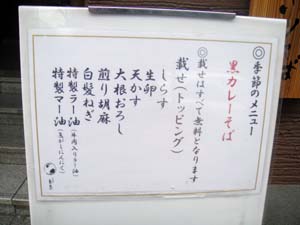 ◎季節のメニュー
黒カレーそば
◎載せはすべて無料となります
載せ(トッピング)
しらす
生卵
天かす
大根おろし
煎り胡麻
白髪ねぎ
特製ラー油(牛肉入りラー油)
特製マー油(焦がしにんにく)